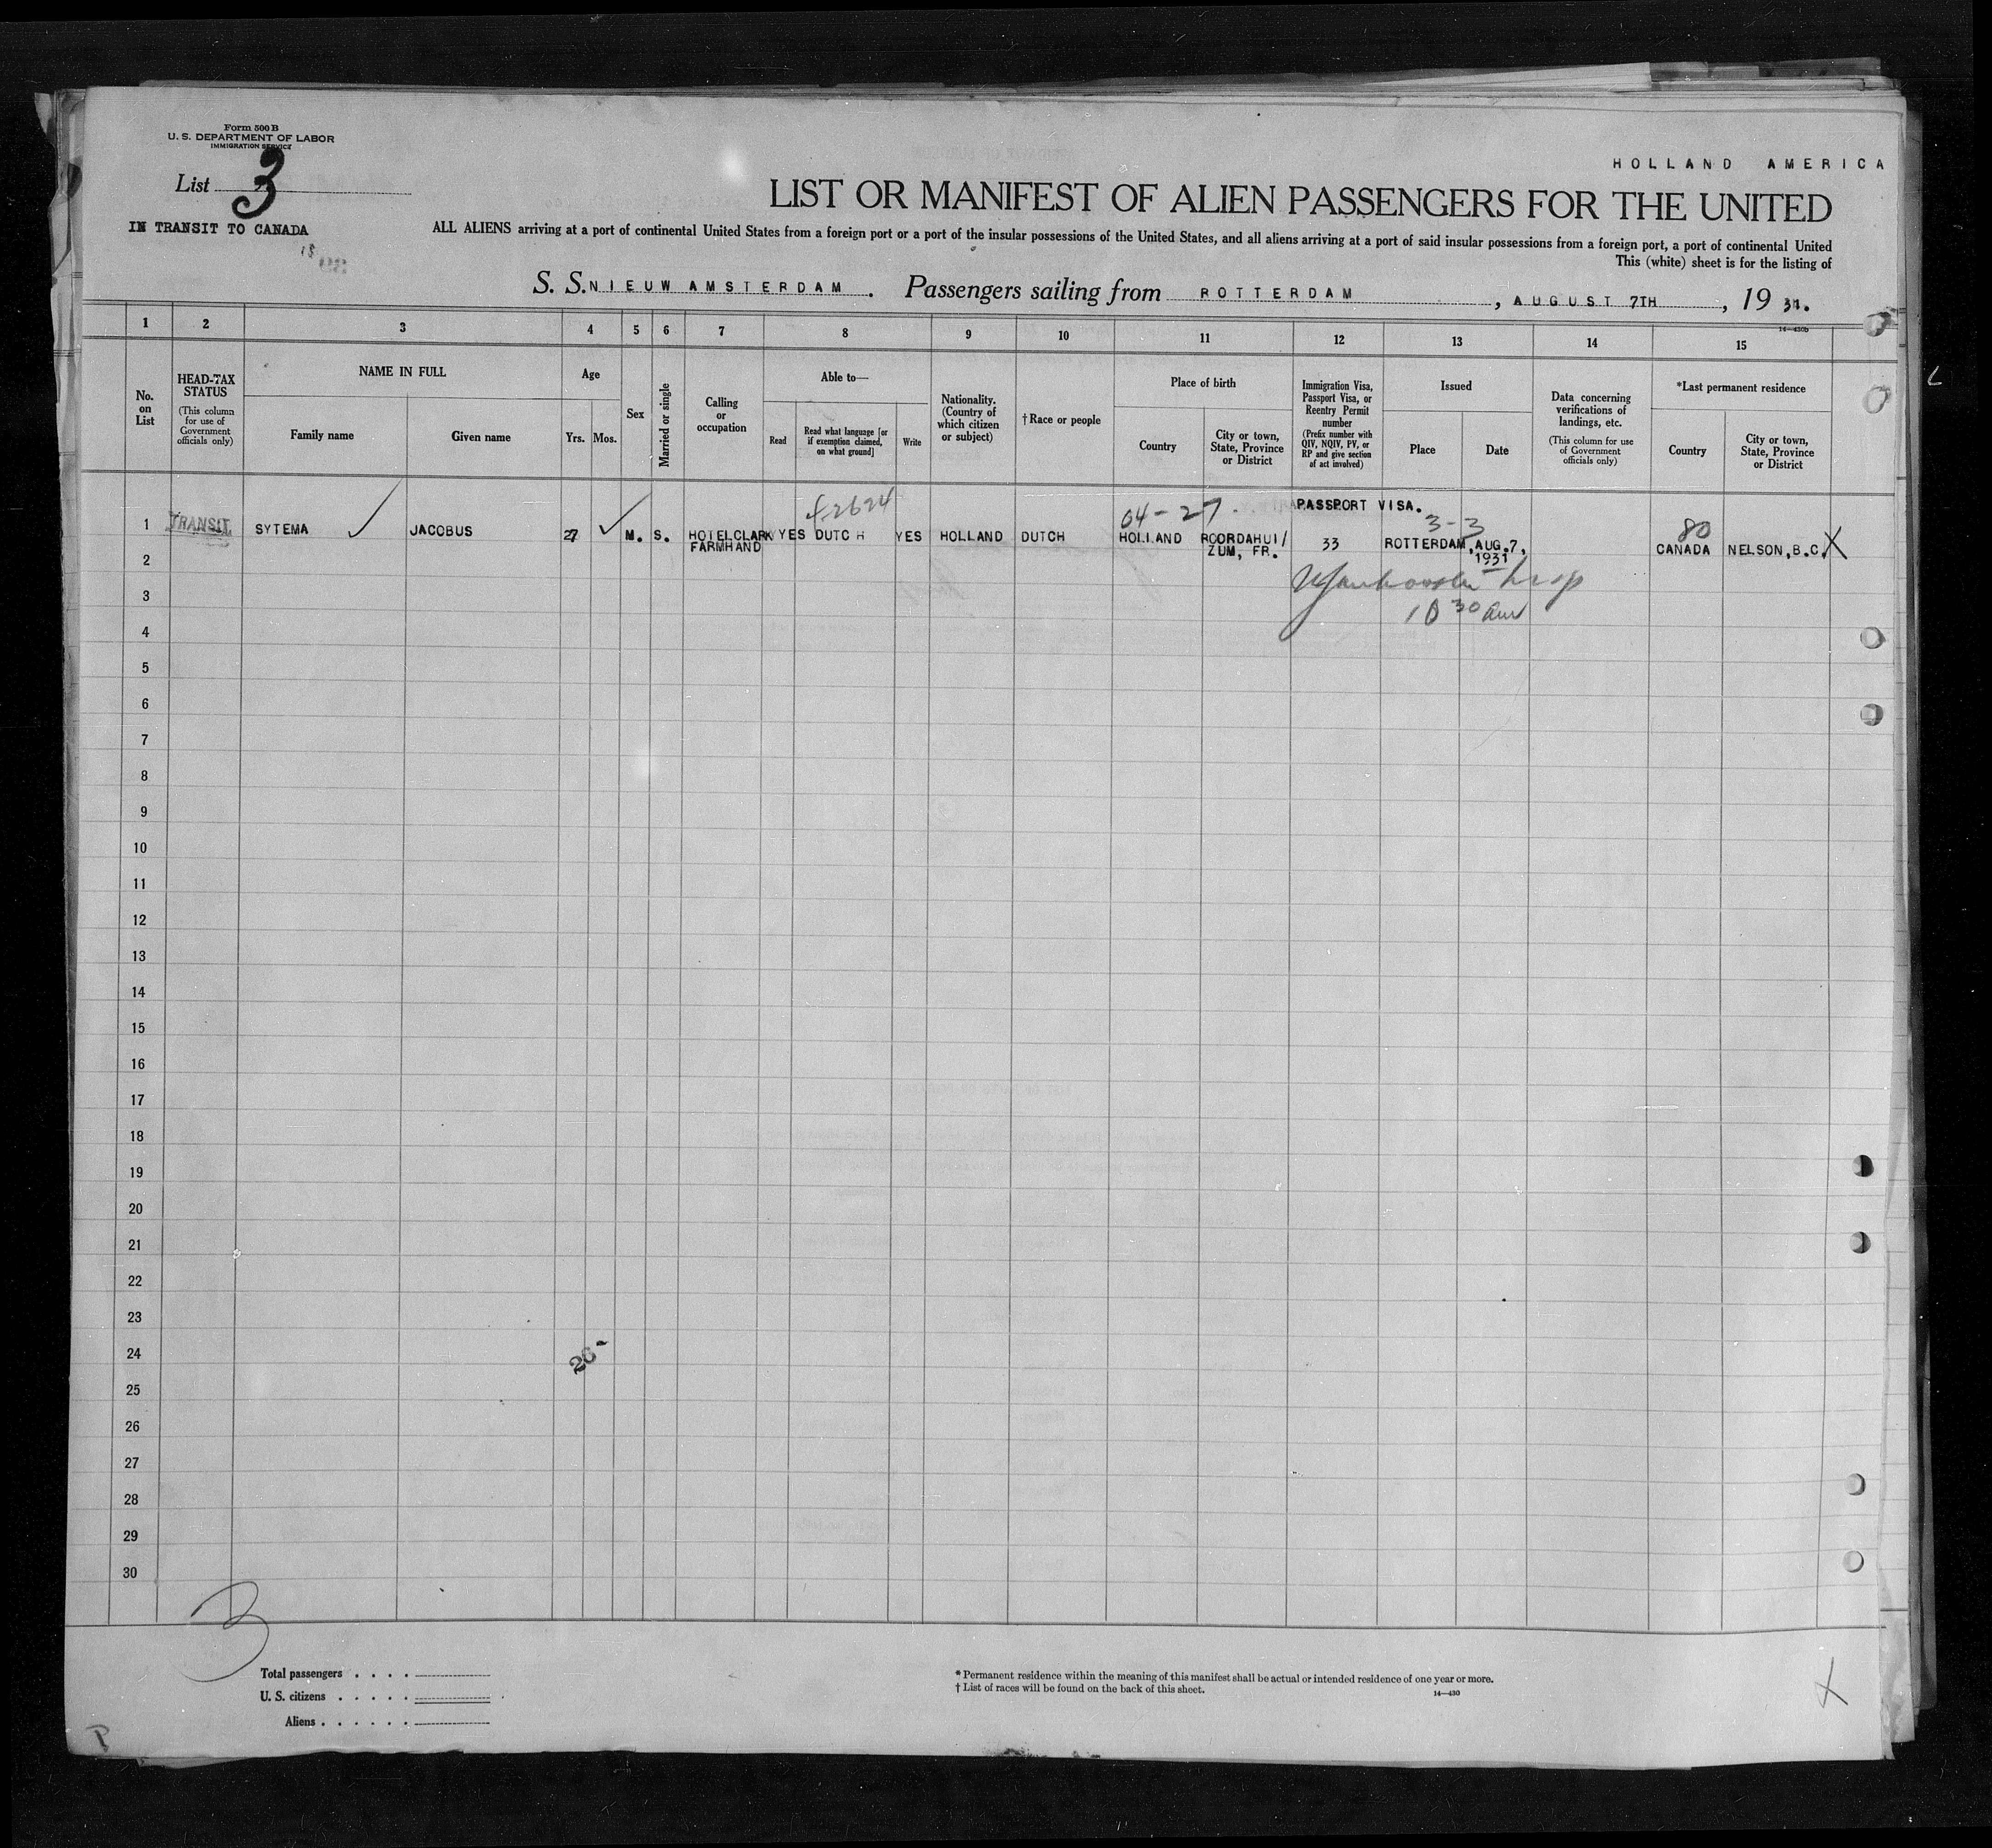 Form 500 B
U. S. DEPARTMENT OF LABOR
IMMIGRATION SERVICE
List 3
IN TRANSIT TO CANADA
HOLLAND AMERICA
LIST OR MANIFEST OF ALIEN PASSENGERS FOR THE UNITED
ALL ALIENS arriving at a port of continental United States from a foreign port or a port of the insular possessions of the United States, and all aliens arriving at a port of said insular possessions from a foreign port, a port of continental United
This (white) sheet is for the listing of
S. S. NIEUW AMSTERDAM. Passengers sailing from ROTTERDAM, AUGUST 7TH, 19 31.
14—430b
1 2 3 4 5 6 7 8 9 10 11 12 13 14 15
No. on List
HEAD-TAX STATUS
(This column for use of Government officials only)
NAME IN FULL
Family name
Given name
Age
Yrs. Mos.
Sex
Married or single
Calling or occupation
Able to—
Read
Read what language [or if exemption claimed, on what ground]
Write
Nationality. (Country of which citizen or subject)
† Race or people
Place of birth
Country
City or town, State, Province or District
Immigration Visa, Passport Visa, or Reentry Permit number
(Prefix number with QIV, NQIV, PV, or RP and give section of act involved)
Issued
Place
Date
Data concerning verifications of landings, etc.
(This column for use of Government officials only)
*Last permanent residence
Country
City or town, State, Province or District
42624 04-27. PASSPORT VISA. 3-3 80
1 TRANSIT SYTEMA JACOBUS 27 M. S. HOTELCLARK YES DUTCH YES HOLLAND DUTCH HOLLAND ROORDAHUI/ 33 ROTTERDAM, AUG.7, CANADA NELSON, B.C. X
FARMHAND ZUM, FR. 1931
2
3
10 30 am
4
5
6
7
8
9
10
11
12
13
14
15
16
17
18
19
20
21
22
23
24
26-
25
26
27
28
29
30
3
Total passengers . . . .
U. S. citizens . . . . .
Aliens . . . . . .
* Permanent residence within the meaning of this manifest shall be actual or intended residence of one year or more.
† List of races will be found on the back of this sheet.
14—430
X
P